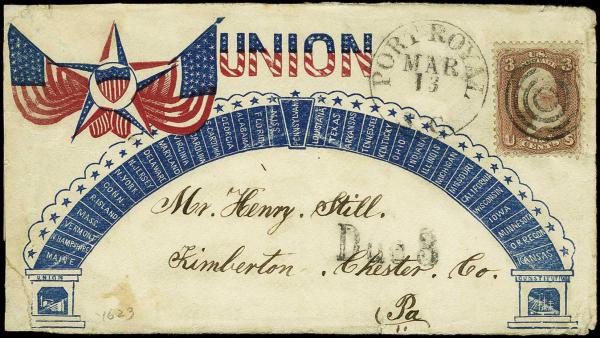 UNION
PORT ROYAL
MAR
13
3 U.S. POSTAGE 3
U THREE CENTS S
MAINE
N.HAMPSHIRE
VERMONT
MASS.
R.ISLAND
CONN.
N.YORK
N.JERSEY
DELAWARE
MARYLAND
VIRGINIA
N.CAROLINA
S.CAROLINA
GEORGIA
ALABAMA
FLORIDA
MISS.
PENNSYLVAN.
LOUISIANA
TEXAS
ARKANSAS
TENNESSEE
KENTUCKY
OHIO
INDIANA
ILLINOIS
MICHIGAN
MISSOURI
CALIFORNIA
WISCONSIN
IOWA
MINNESOTA
ORREGON
KANSAS
Mr. Henry. Still.
Due 3
Kimberton. Chester. Co.
Pa
UNION
CONSTITUTION
1623